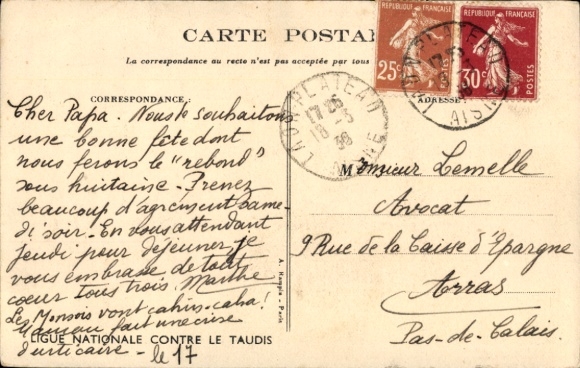 CARTE POSTALE
La correspondance au recto n'est pas acceptée par tous
RÉPUBLIQUE FRANÇAISE
25c
POSTES
RÉPUBLIQUE FRANÇAISE
30c
POSTES
LAON-PLATEAU
AISNE
LAON-PLATEAU
18-5
36
AISNE
CORRESPONDANCE :
ADRESSE :
Cher Papa. Nous te souhaitons
une bonne fête dont
nous ferons le "rebond"
sous huitaine - Prenez
beaucoup d'agrément same-
di soir - En vous attendant
jeudi pour déjeuner, je
vous embrasse de tout
coeur tous trois Marthe
Les Monsois vont cahin-caha !
fait une crise
d'urticaire - le 17
Monsieur Lemelle
Avocat
9 Rue de la Caisse d'Epargne
Arras
Pas-de-Calais.
LIGUE NATIONALE CONTRE LE TAUDIS
Paris